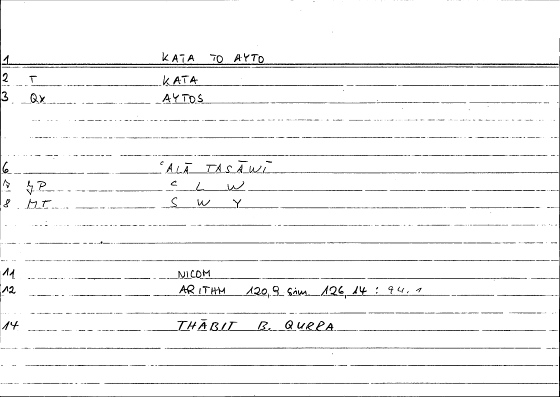 1 KATA TO AYTO
2 T KATA
3 QX AYTOS
6 ʿALĀ TASĀWĪ
7 P ʿ L W
8 MT S W Y
11 NICOM
12 ARITHM 120,9 sim 126,14 : 94.1
14 THĀBIT B. QURRA